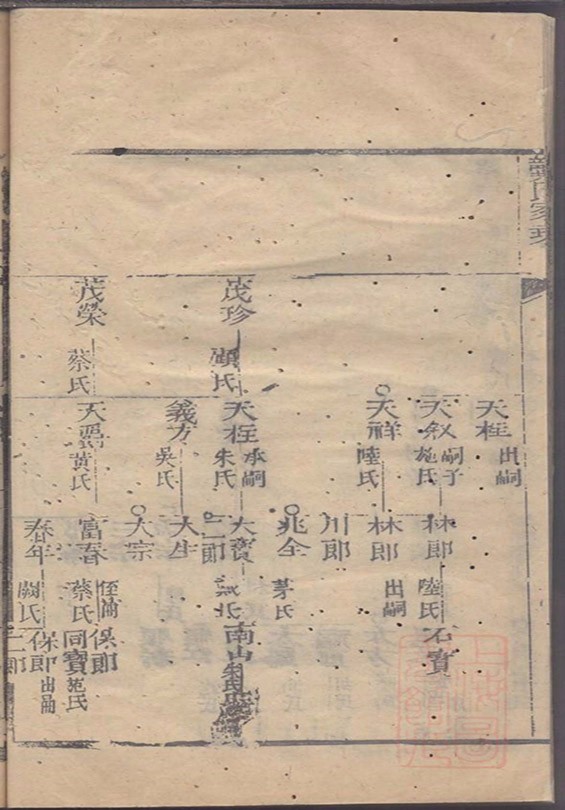 氏家
天柱 出嗣
天叙 嗣子 施氏
天祥 陸氏
林郎 陸氏
石寶
林郎 出嗣
川郎
兆全 茅氏
茂珍 顧氏
天柱 承嗣 朱氏
義方 吳氏
大寶 氏
南山
二郎
大生
大宗
茂榮 蔡氏
天爵 黃氏
富春 蔡氏
保郎
同寶 施氏
春年 闕氏
保郎 出嗣
二郎